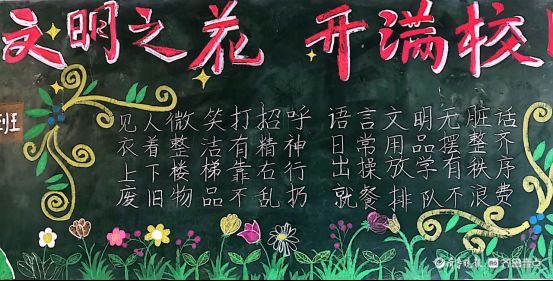 文明之花 开满校
班
见人微笑打招呼 语言文明无脏话
衣着整洁有精神 日常用品摆整齐
上下楼梯靠右行 出操放学有秩序
废旧物品不乱扔 就餐排队不浪费